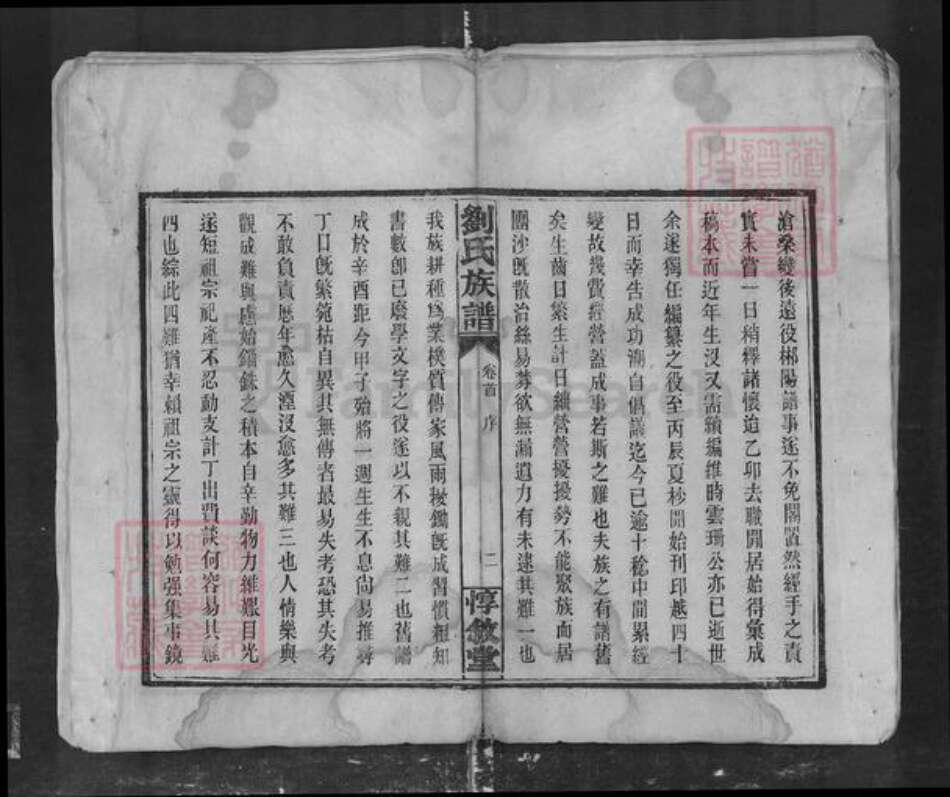 滄桑變後遠役郴陽譜事遂不免閣置然經手之責
實未嘗一日稍釋諸懷迨乙卯去職閒居始得彙成
稿本而近年生沒又需續編維時雲珊公亦已逝世
余遂獨任編纂之役至丙辰夏杪開始刊印越四十
日而幸告成功溯自倡議迄今已逾十稔中間累經
變故幾費經營蓋成事若斯之難也夫族之有譜舊
矣生齒日繁生計日絀營營擾擾勢不能聚族而居
團沙既散治絲易棼欲無漏遺力有未逮其難一也
劉氏族譜
卷首 序
二
惇敘堂
我族耕種為業樸質傳家風雨耰鋤既成習慣粗知
書數即已廢學文字之役遂以不親其難二也舊譜
成於辛酉距今甲子殆將一週生生不息尚易推尋
丁口既繁菀枯自異其無傳者最易失考恐其失考
不敢負責歷年愈久湮沒愈多其難三也人情樂與
觀成難與慮始錙銖之積本自辛勤物力維艱目光
遂短祖宗祀產不忍動支計丁出費談何容易其難
四也綜此四難猶幸賴祖宗之靈得以勉强集事鏡